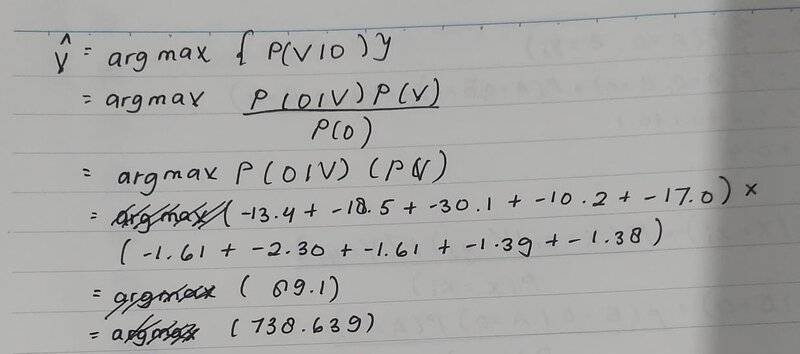 V̂ = arg max { P(V|O) }
= argmax P(O|V) P(V)
P(O)
= argmax P(O|V) (PV)
= argmax (-13.4 + -18.5 + -30.1 + -10.2 + -17.0) ×
(-1.61 + -2.30 + -1.61 + -1.39 + -1.38)
= argmax ( 69.1)
= argmax (738.639)